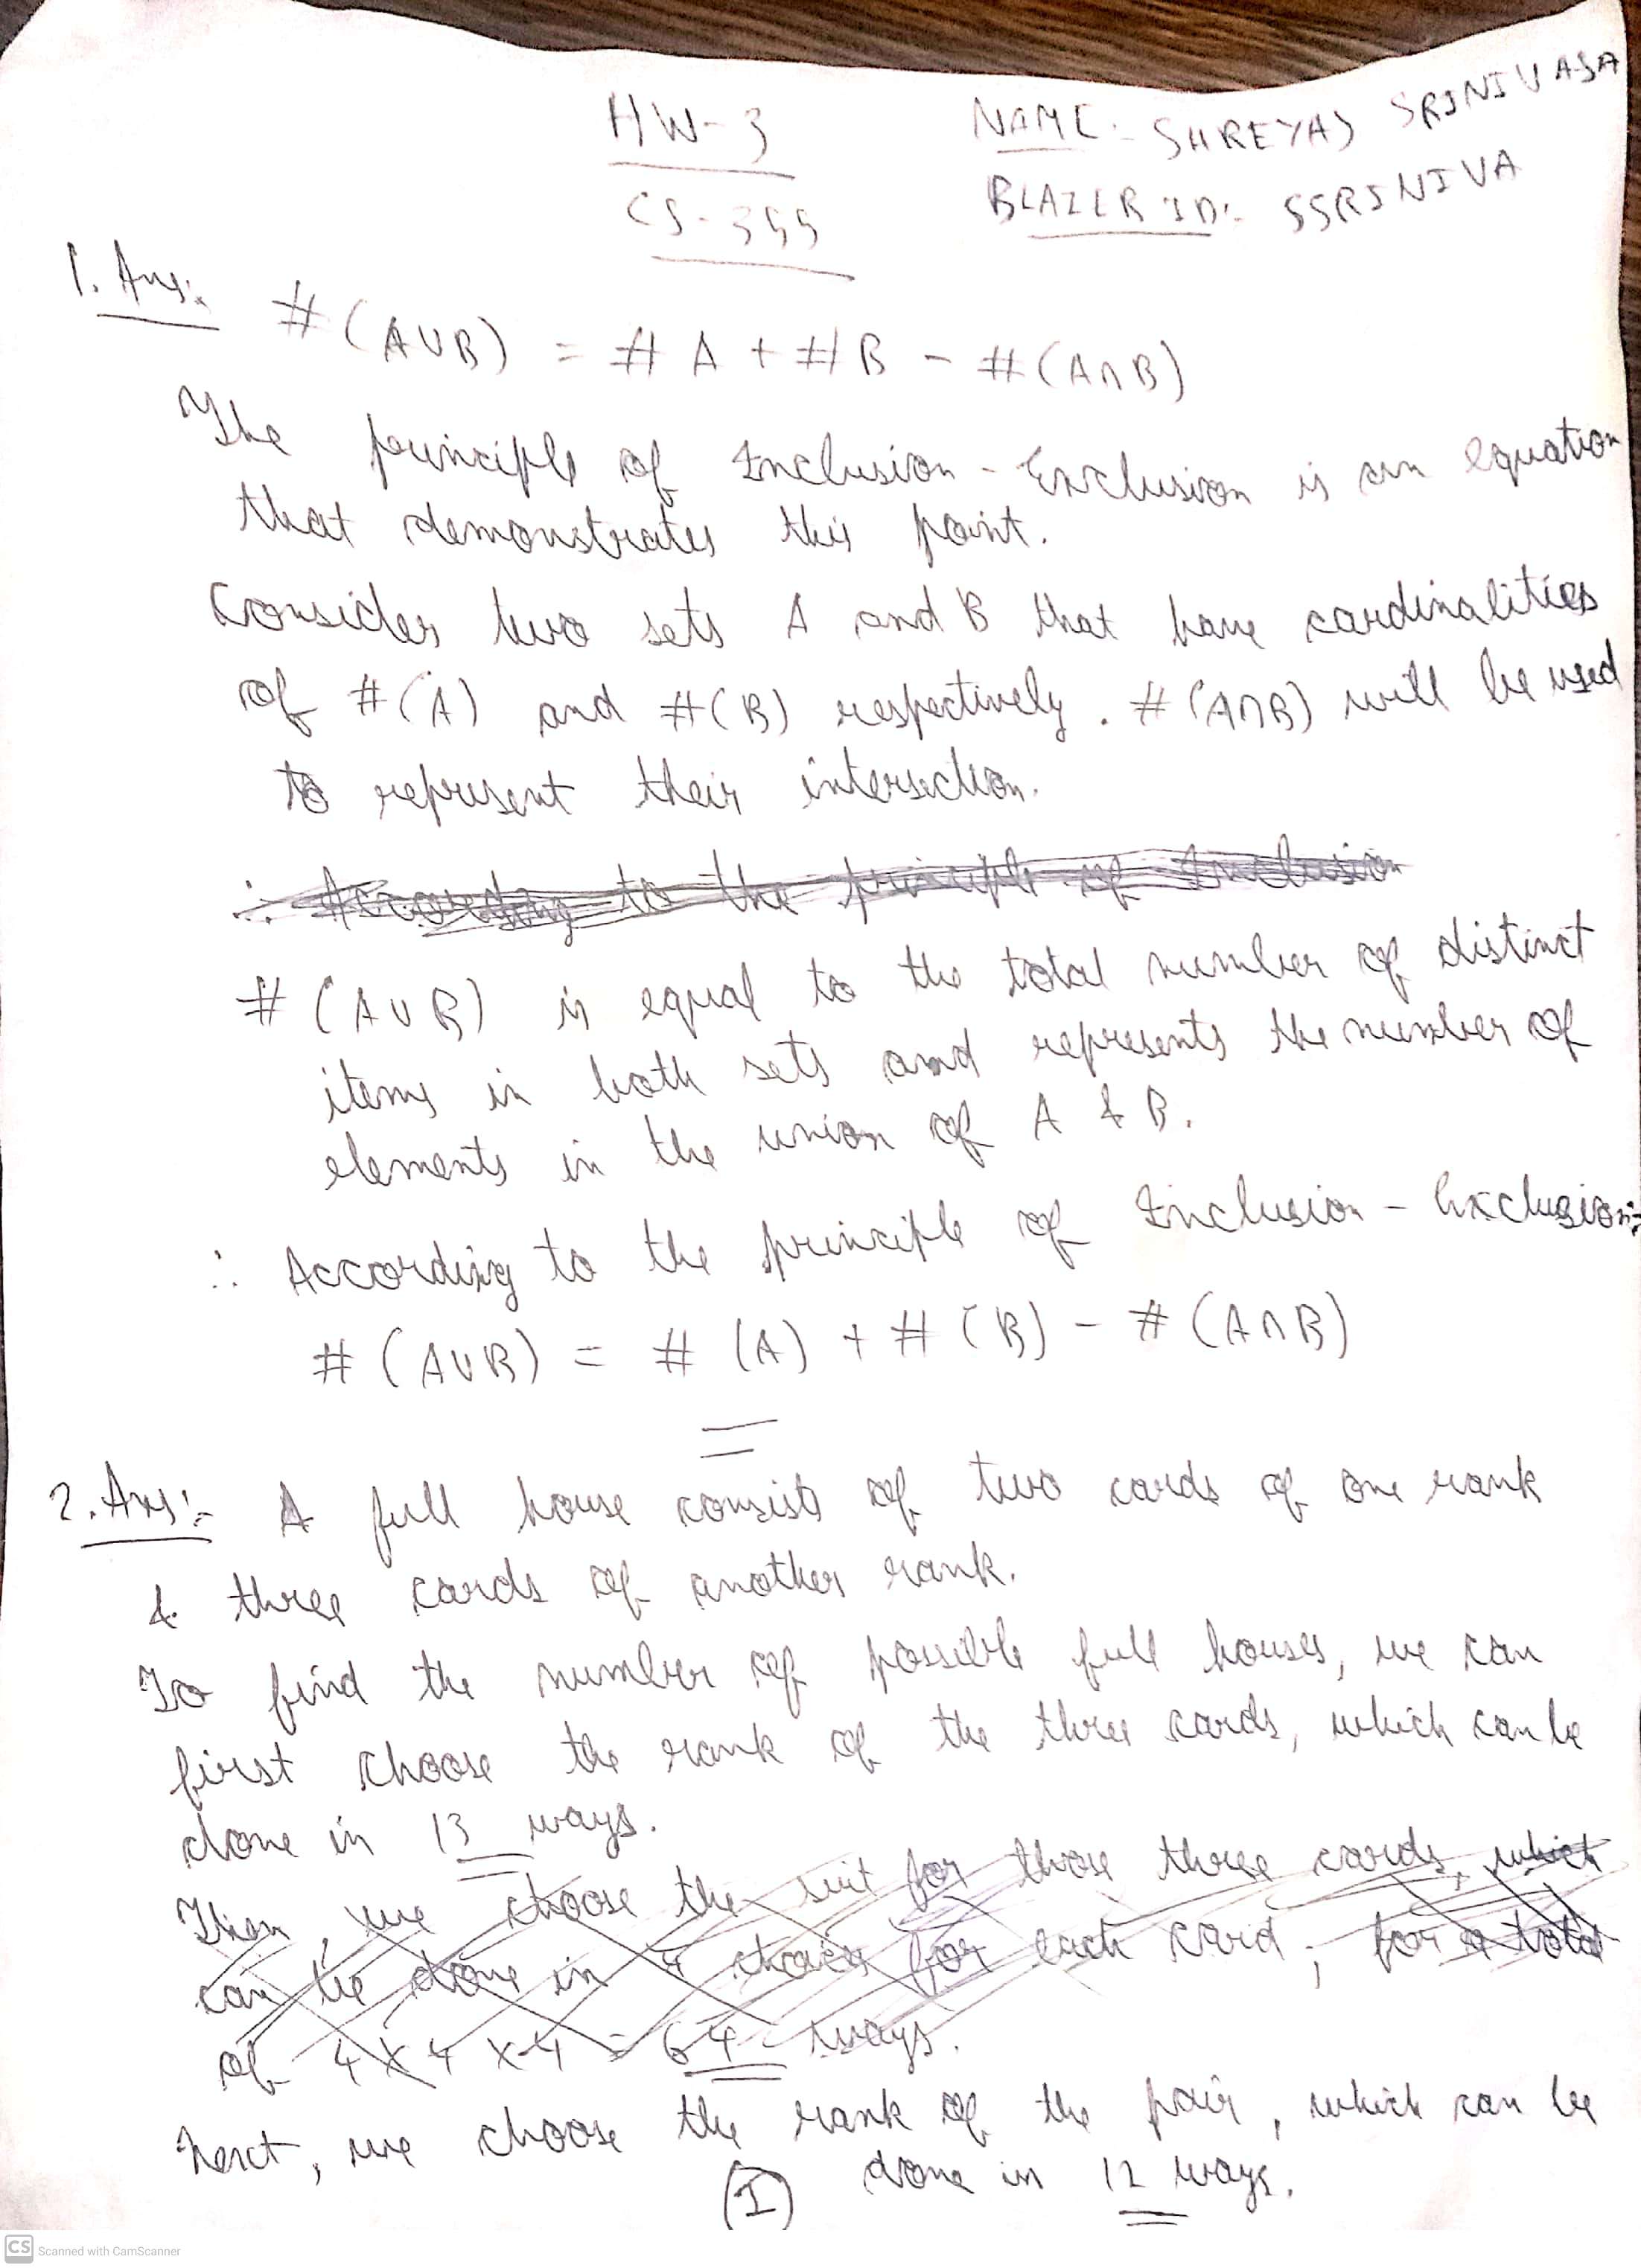 HW-3
CS-355
NAME:- SHREYAS SRINIVASA
BLAZER ID:- SSRINIVA
1. Ans:- #(A∪B) = #A + #B - #(A∩B)
The principle of Inclusion-Exclusion is an equation
that demonstrates this point.
Consider two sets A and B that have cardinalities
of #(A) and #(B) respectively. #(A∩B) will be used
to represent their intersection.
∴ According to the principle of Inclusion
#(A∪B) is equal to the total number of distinct
items in both sets and represents the number of
elements in the union of A & B.
∴ According to the principle of Inclusion-Exclusion:-
#(A∪B) = #(A) + #(B) - #(A∩B)
2. Ans:- A full house consists of two cards of one rank
& three cards of another rank.
To find the number of possible full houses, we can
first choose the rank of the three cards, which can be
done in 13 ways.
Then, we choose the suit for those three cards, which
can be done in 4 choices for each card; for a total
of 4 x 4 x 4 = 64 ways.
Next, we choose the rank of the pair, which can be
done in 12 ways.
I
CS Scanned with CamScanner